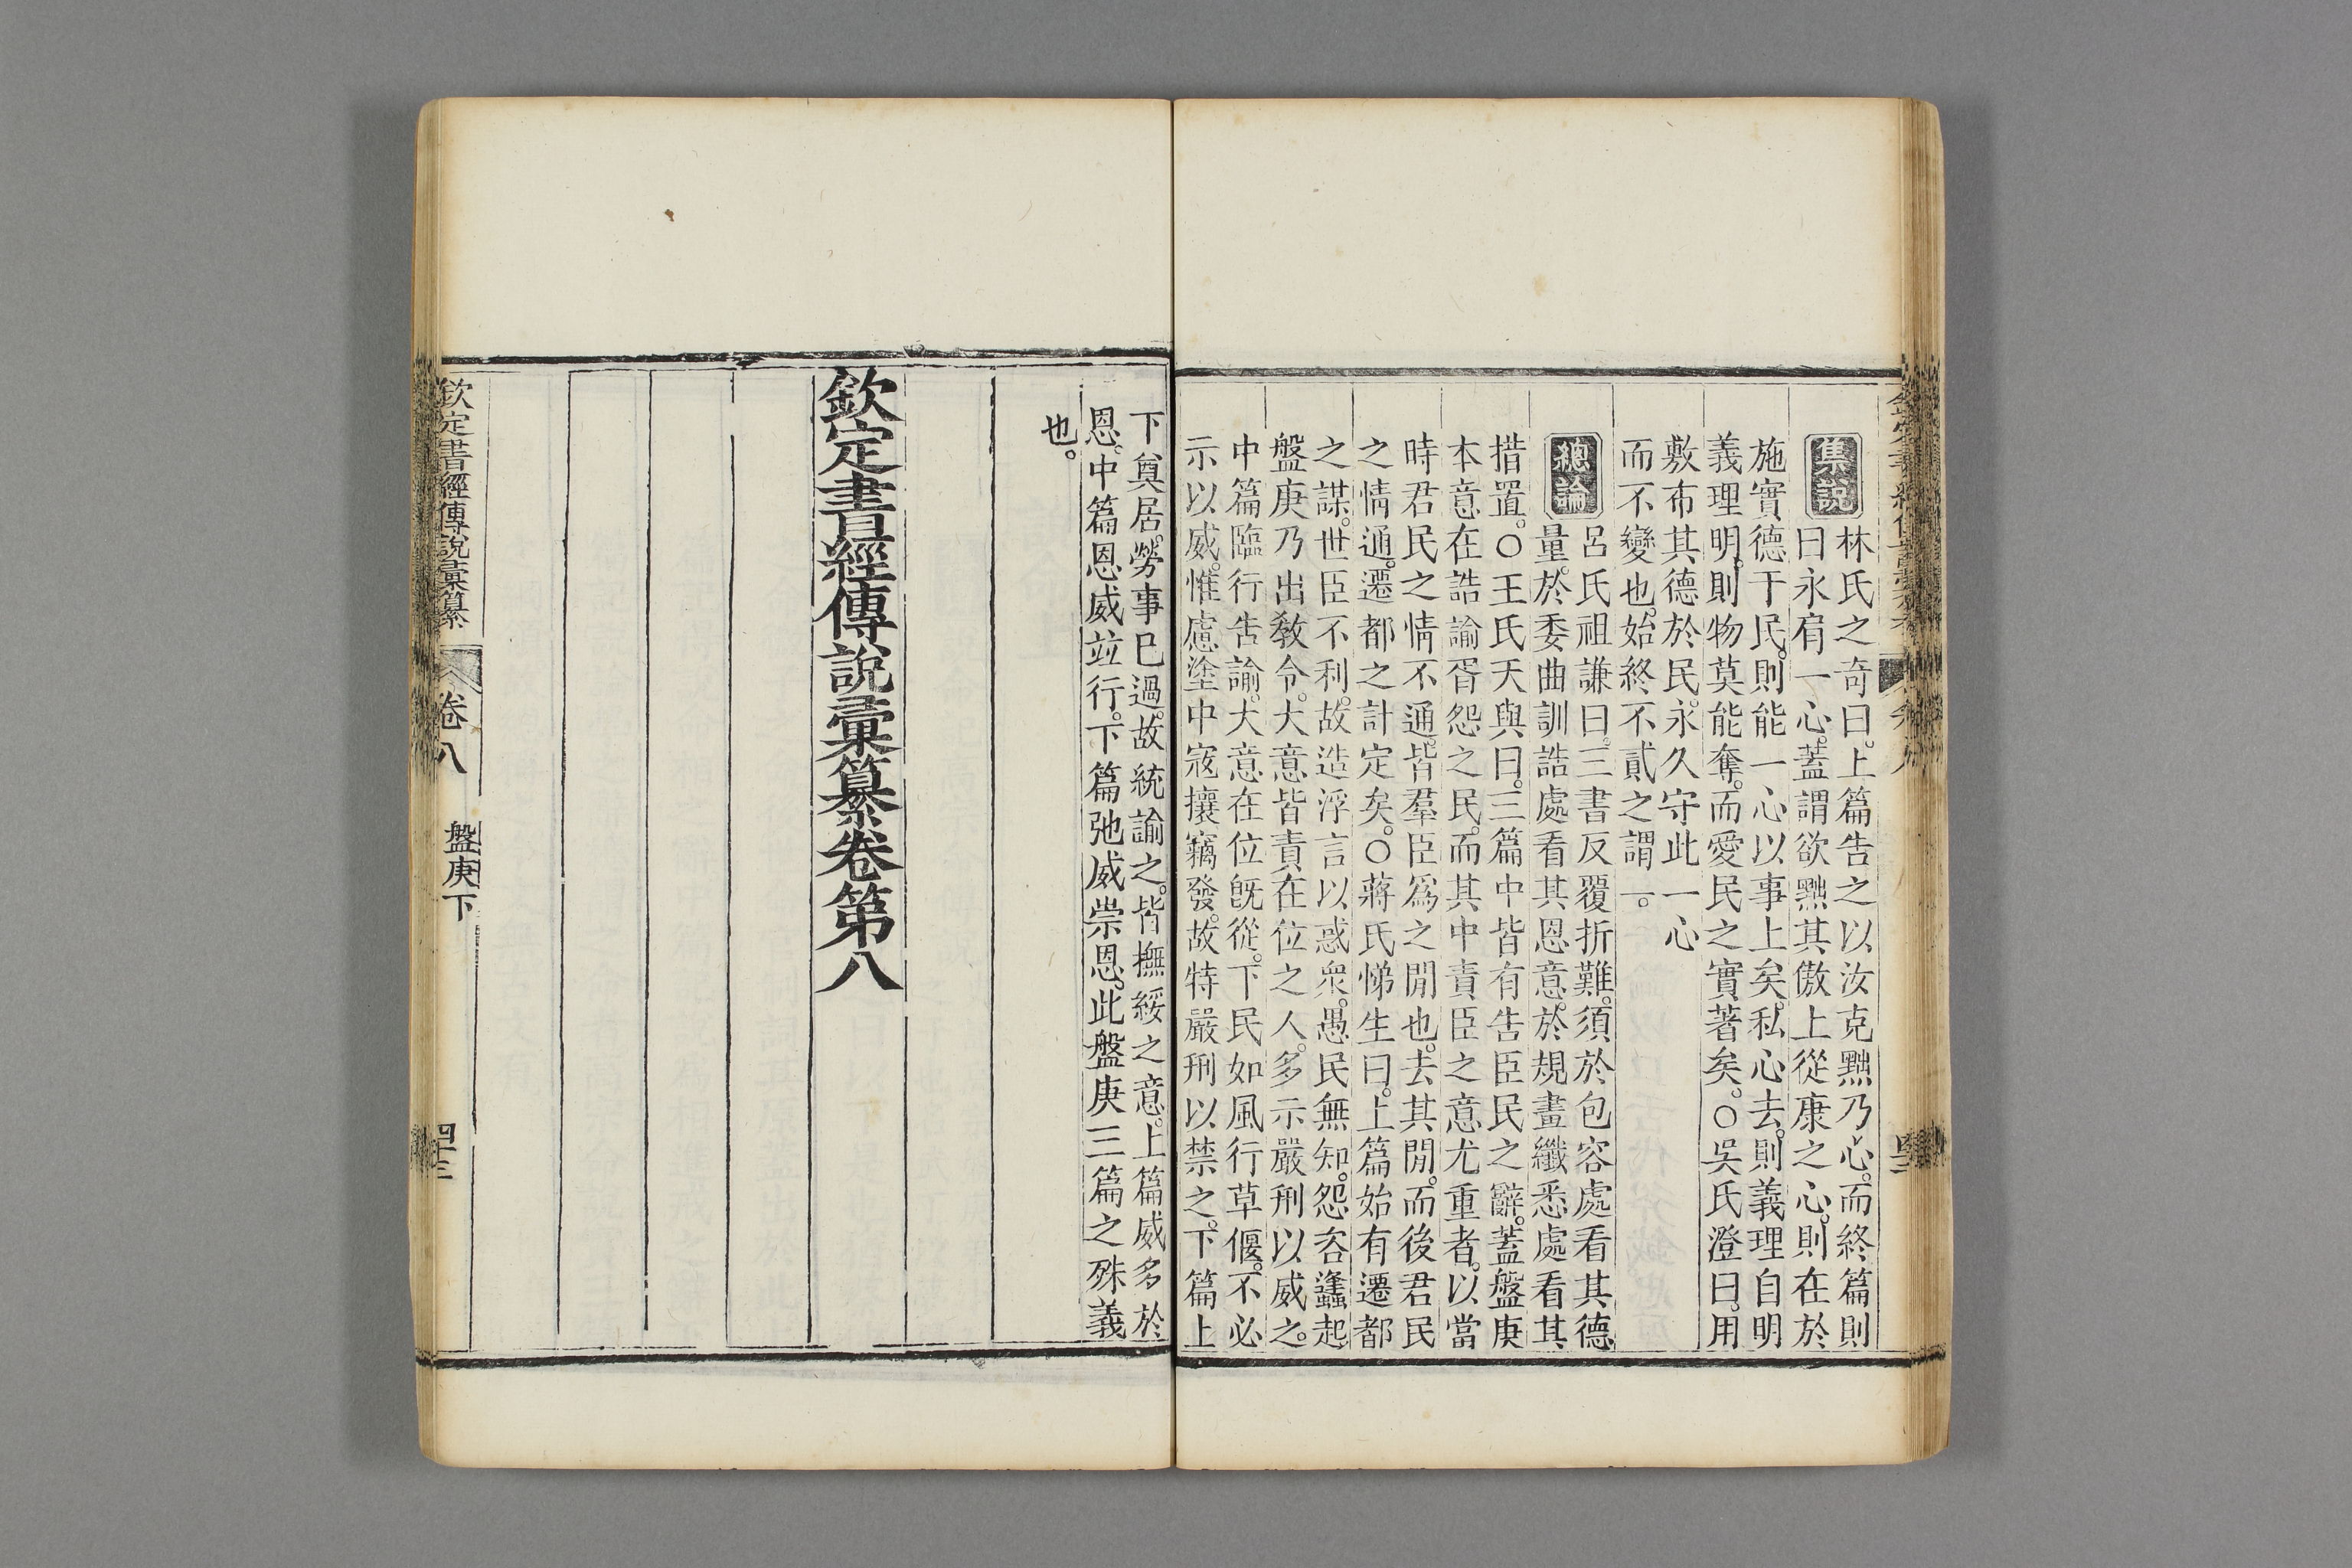 集說
林氏之奇曰。上篇告之以汝克黜乃心。而終篇則
曰永肩一心。蓋謂欲黜其傲上從康之心。則在於
施實德于民。則能一心以事上矣。私心去。則義理自明
義理明。則物莫能奪。而愛民之實著矣。○吳氏澄曰。用
敷布其德於民。永久守此一心
而不變也。始終不貳之謂一。
總論
呂氏祖謙曰。三書反覆折難。須於包容處看其德
量。於委曲訓誥處看其恩意。於規畫纖悉處看其
措置。○王氏天與曰。三篇中皆有告臣民之辭。蓋盤庚
本意在誥諭胥怨之民。而其中責臣之意尤重者。以當
時君民之情不通。皆羣臣爲之閒也。去其閒。而後君民
之情通。遷都之計定矣。○蔣氏悌生曰。上篇始有遷都
之謀。世臣不利。故造浮言以惑衆。愚民無知。怨咨蠭起
盤庚乃出敎令。大意皆責在位之人。多示嚴刑以威之。
中篇臨行告諭。大意在位旣從。下民如風行草偃。不必
示以威。惟慮塗中寇攘竊發。故特嚴刑以禁之。下篇上
下奠居。勞事已過。故統諭之。皆撫綏之意。上篇威多於
恩。中篇恩威竝行。下篇弛威崇恩。此盤庚三篇之殊義
也。
欽定書經傳說彙纂卷第八
欽定書經傳說彙纂 卷八 盤庚下 四十三